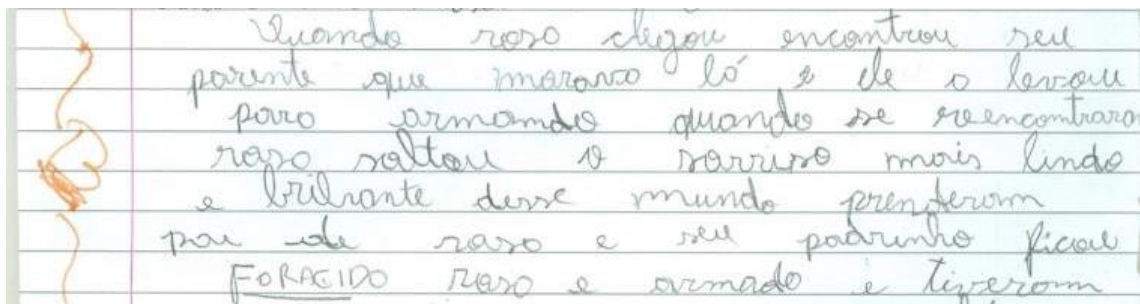 Quando rosa chegou encontrou seu
parente que morava lá e ele a levou
para armando quando se reencontraram
rosa soltou o sorriso mais lindo
e brilhante desse mundo prenderam
pai de rosa e seu padrinho ficou
FORAGIDO rosa e armado e tiveram